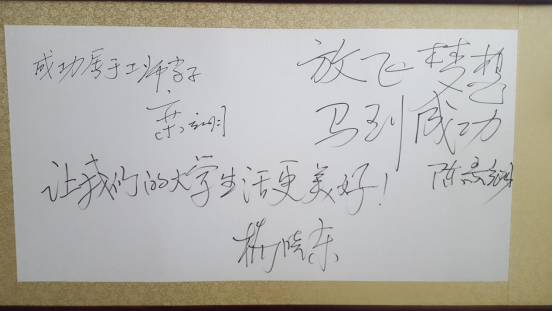 放飞梦想
马到成功
成功属于工师学子
让我们的大学生活更美好！
杨晓东